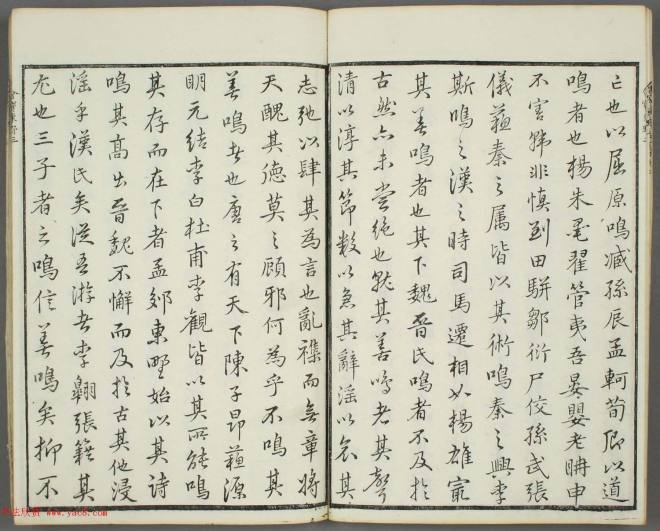 亡也以屈原鳴臧孫辰孟軻荀卿以道
鳴者也楊朱墨翟管夷吾晏嬰老聃申
不害韓非慎到田駢鄒衍尸佼孫武張
儀蘇秦之属皆以其術鳴秦之興李
斯鳴之漢之時司馬遷相如楊雄最
其善鳴者也其下魏晉氏鳴者不及於
古然亦未嘗絶也就其善鳴者其聲
清以淳其節數以急其辭淫以哀其
志弛以肆其為言也亂襍而無章將
天醜其德莫之顧邪何為乎不鳴其
善鳴者也唐之有天下陳子昂蘇源
明元結李白杜甫李觀皆以其所能鳴
其存而在下者孟郊東野始以其詩
鳴其高出晉魏不懈而及於古其他浸
淫乎漢氏矣從吾游者李翱張籍其
尤也三子者之鳴信善鳴矣抑不
www.yac8.com